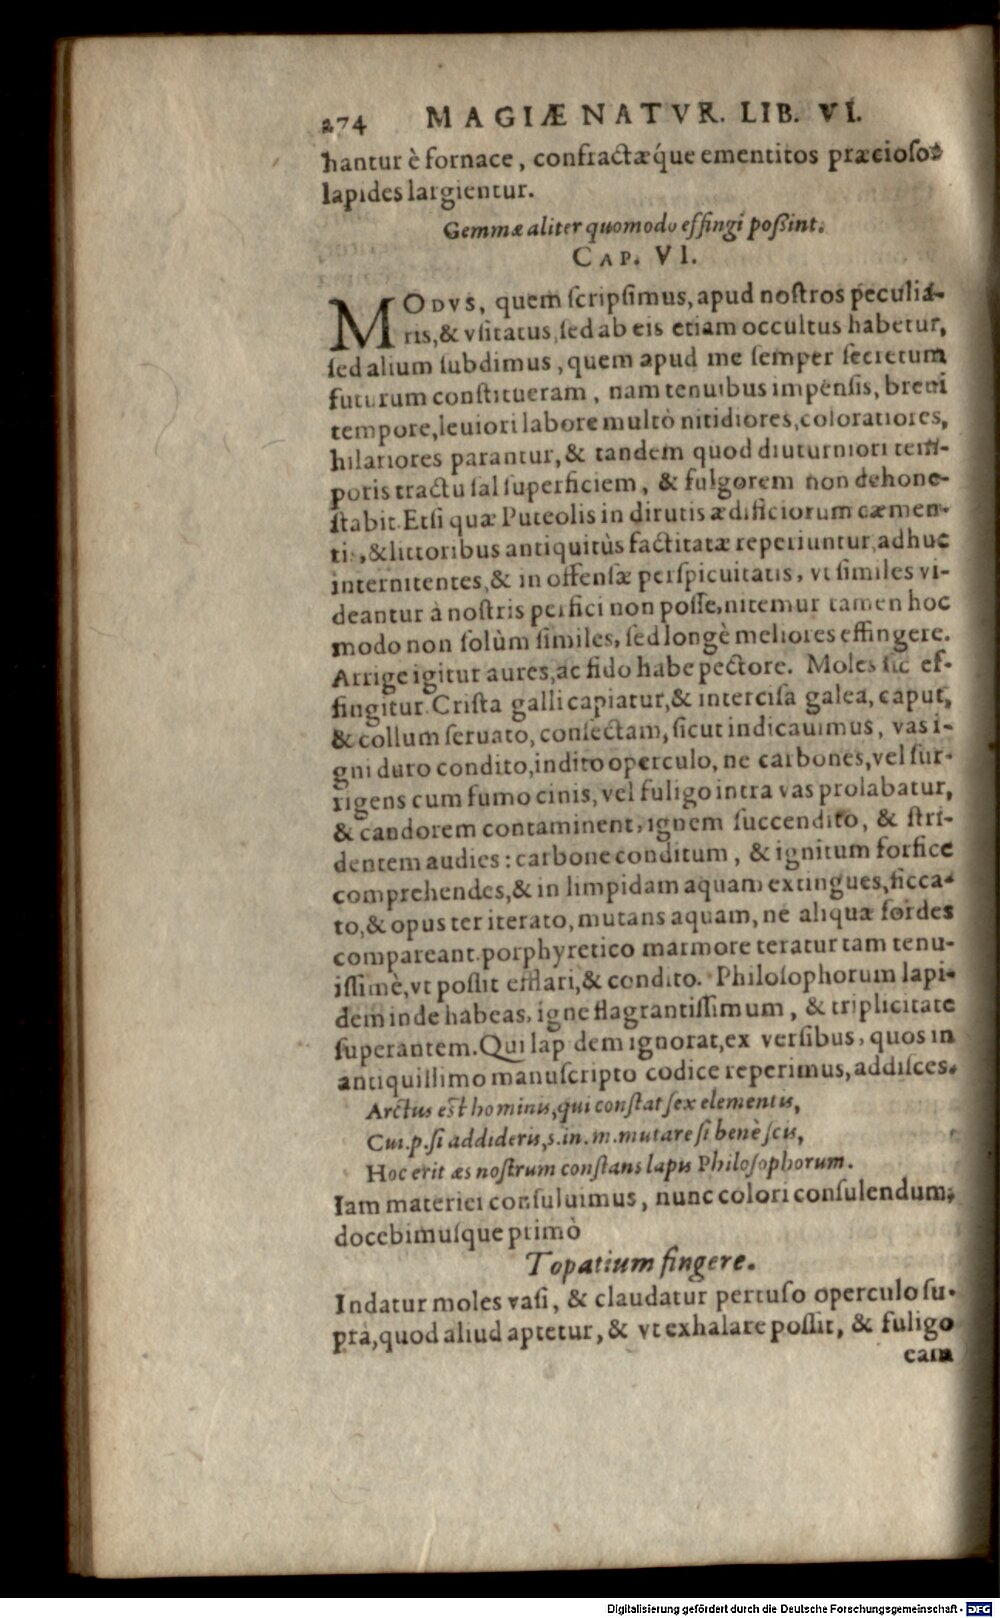 274 MAGIÆ NATVR. LIB. VI.
hantur è fornace, confractæq́ue ementitos præciosos
lapides largientur.
Gemmæ aliter quomodo effingi poßint.
CAP. VI.
MODVS, quem scripsimus, apud nostros peculia-
ris, & vsitatus, sed ab eis etiam occultus habetur,
sed alium subdimus, quem apud me semper secretum
futurum constitueram, nam tenuibus impensis, breui
tempore, leuiori labore multò nitidiores, coloratiores,
hilariores parantur, & tandem quod diuturniori tem-
poris tractu sal superficiem, & fulgorem non dehone-
stabit. Etsi quæ Puteolis in dirutis ædificiorum cæmen-
tis, & littoribus antiquitùs factitatæ reperiuntur, adhuc
internitentes, & in offensæ perspicuitatis, vt similes vi-
deantur à nostris perfici non posse, nitemur tamen hoc
modo non solùm similes, sed longè meliores effingere.
Arrige igitur aures, ac fido habe pectore. Moles sic ef-
fingitur. Crista galli capiatur, & intercisa galea, caput,
& collum seruato, consectam, sicut indicauimus, vas i-
gni duro condito, indito operculo, ne carbones, vel sur-
rigens cum fumo cinis, vel fuligo intra vas prolabatur,
& candorem contaminent, ignem succendito, & stri-
dentem audies: carbone conditum, & ignitum forfice
comprehendes, & in limpidam aquam extingues, sicca-
to, & opus ter iterato, mutans aquam, ne aliquæ sordes
compareant. porphyretico marmore teratur tam tenu-
issimè, vt possit efflari, & condito. Philosophorum lapi-
dem inde habeas, igne flagrantissimum, & triplicitate
superantem. Qui lapidem ignorat, ex versibus, quos in
antiquissimo manuscripto codice reperimus, addisces.
Arctus est hominis, qui constat sex elementis,
Cui .p. si addideris, s. in. m. mutare si benè scis,
Hoc erit æs nostrum constans lapis Philosophorum.
Iam materiei consuluimus, nunc colori consulendum,
docebimusque primò
Topatium fingere.
Indatur moles vasi, & claudatur pertuso operculo su-
pra, quod aliud aptetur, & vt exhalare possit, & fuligo
eam
Digitalisierung gefördert durch die Deutsche Forschungsgemeinschaft - DFG